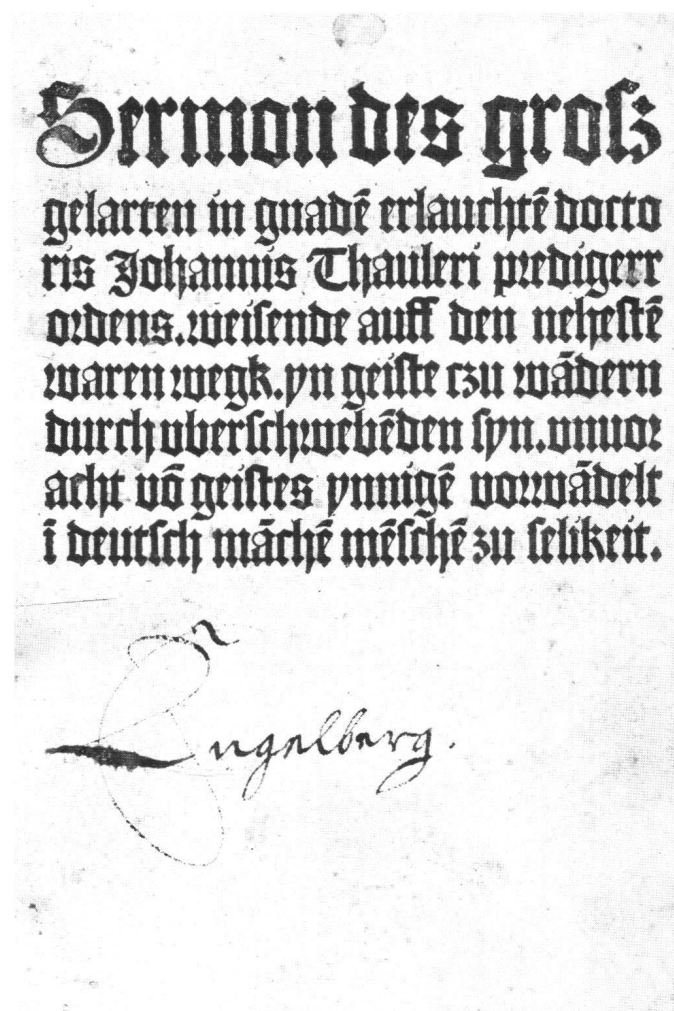 Sermon des groſz
gelarten in gnadē erlauchtē docto
ris Johannis Thauleri predigerr
ordens.weiſende auff den neheſtē
waren wegk.yn geiſte czu wādern
durch vberſchwebēden ſyn.vnuor
acht vō geiſtes ynnigē vorwādelt
ī deutſch māchē mēſchē zu ſelikeit.
Engelberg.